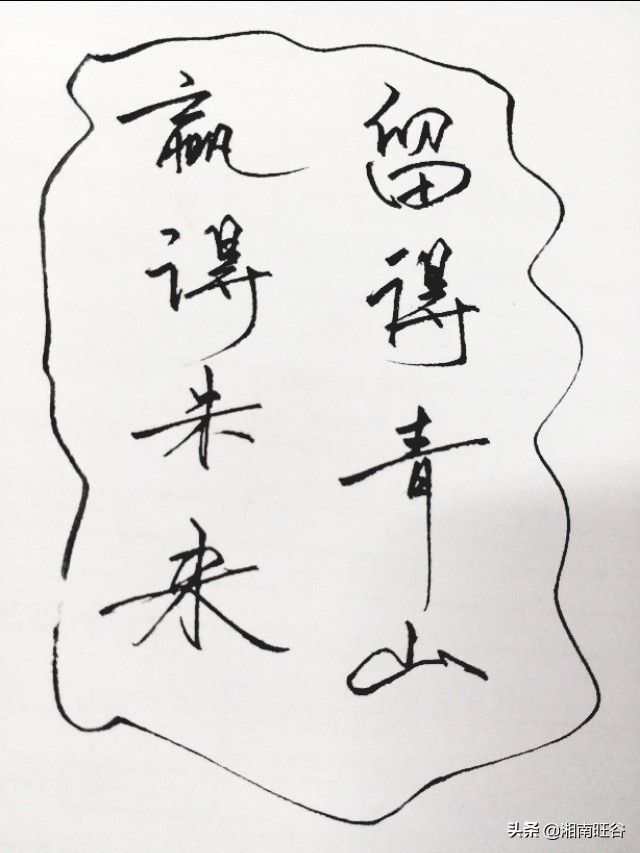 留得青山
赢得未来
头条 @湘南旺谷